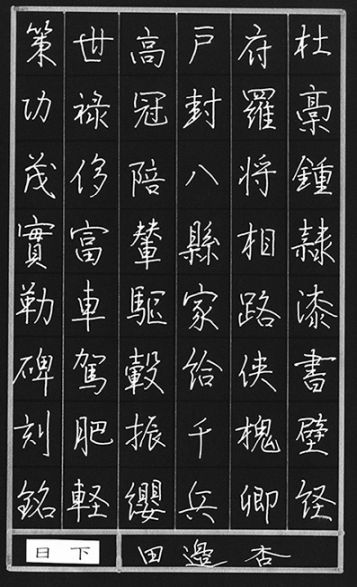 杜稾鍾隷漆書壁経
府羅将相路侠槐卿
戸封八縣家給千兵
高冠陪輦驅轂振纓
世禄侈富車駕肥軽
策功茂實勒碑刻銘
日下
田邉杏